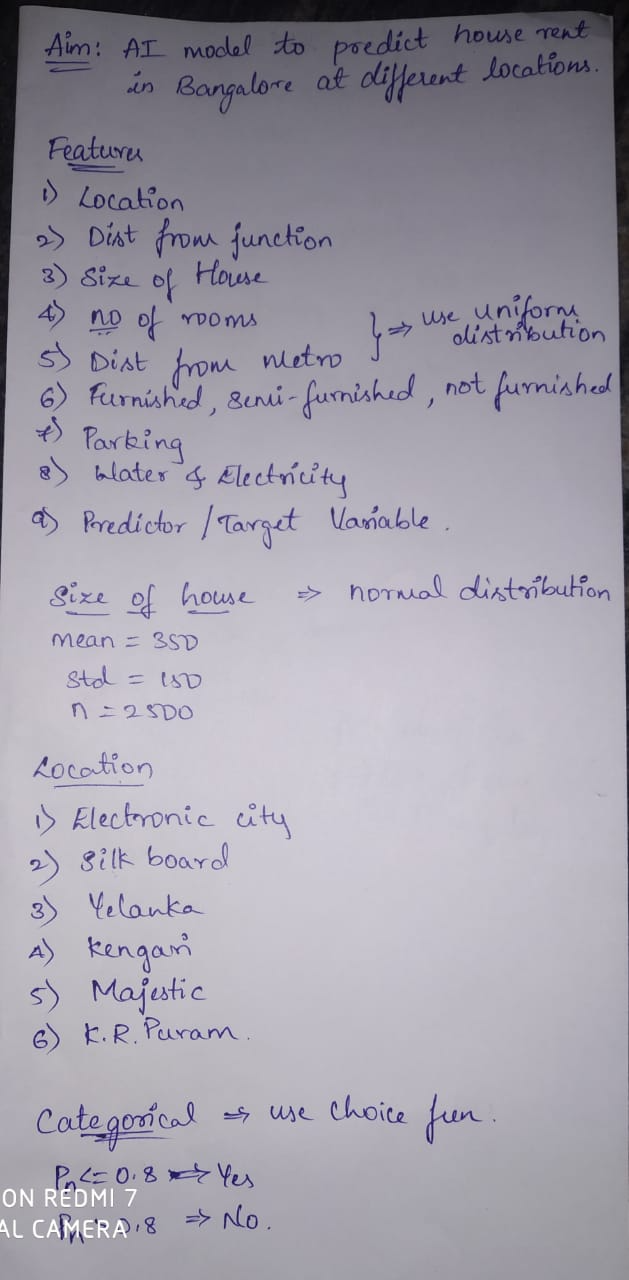 Aim: AI model to predict house rent
in Bangalore at different locations.
Features
1) Location
2) Dist from junction
3) Size of House
4) no of rooms
5) Dist from metro
} ⇒ use uniform
distribution
6) Furnished, semi-furnished, not furnished
7) Parking
8) Water & Electricity
9) Predictor / Target Variable.
Size of house ⇒ normal distribution
mean = 350
std = 150
n = 2500
Location
1) Electronic city
2) Silk board
3) Yelanka
4) Kengari
5) Majestic
6) K.R. Puram.
Categorical ⇒ use choice fun.
Pn <= 0.8 ⇒ Yes
0.8 ⇒ No.
ON REDMI 7
AL CAMERA